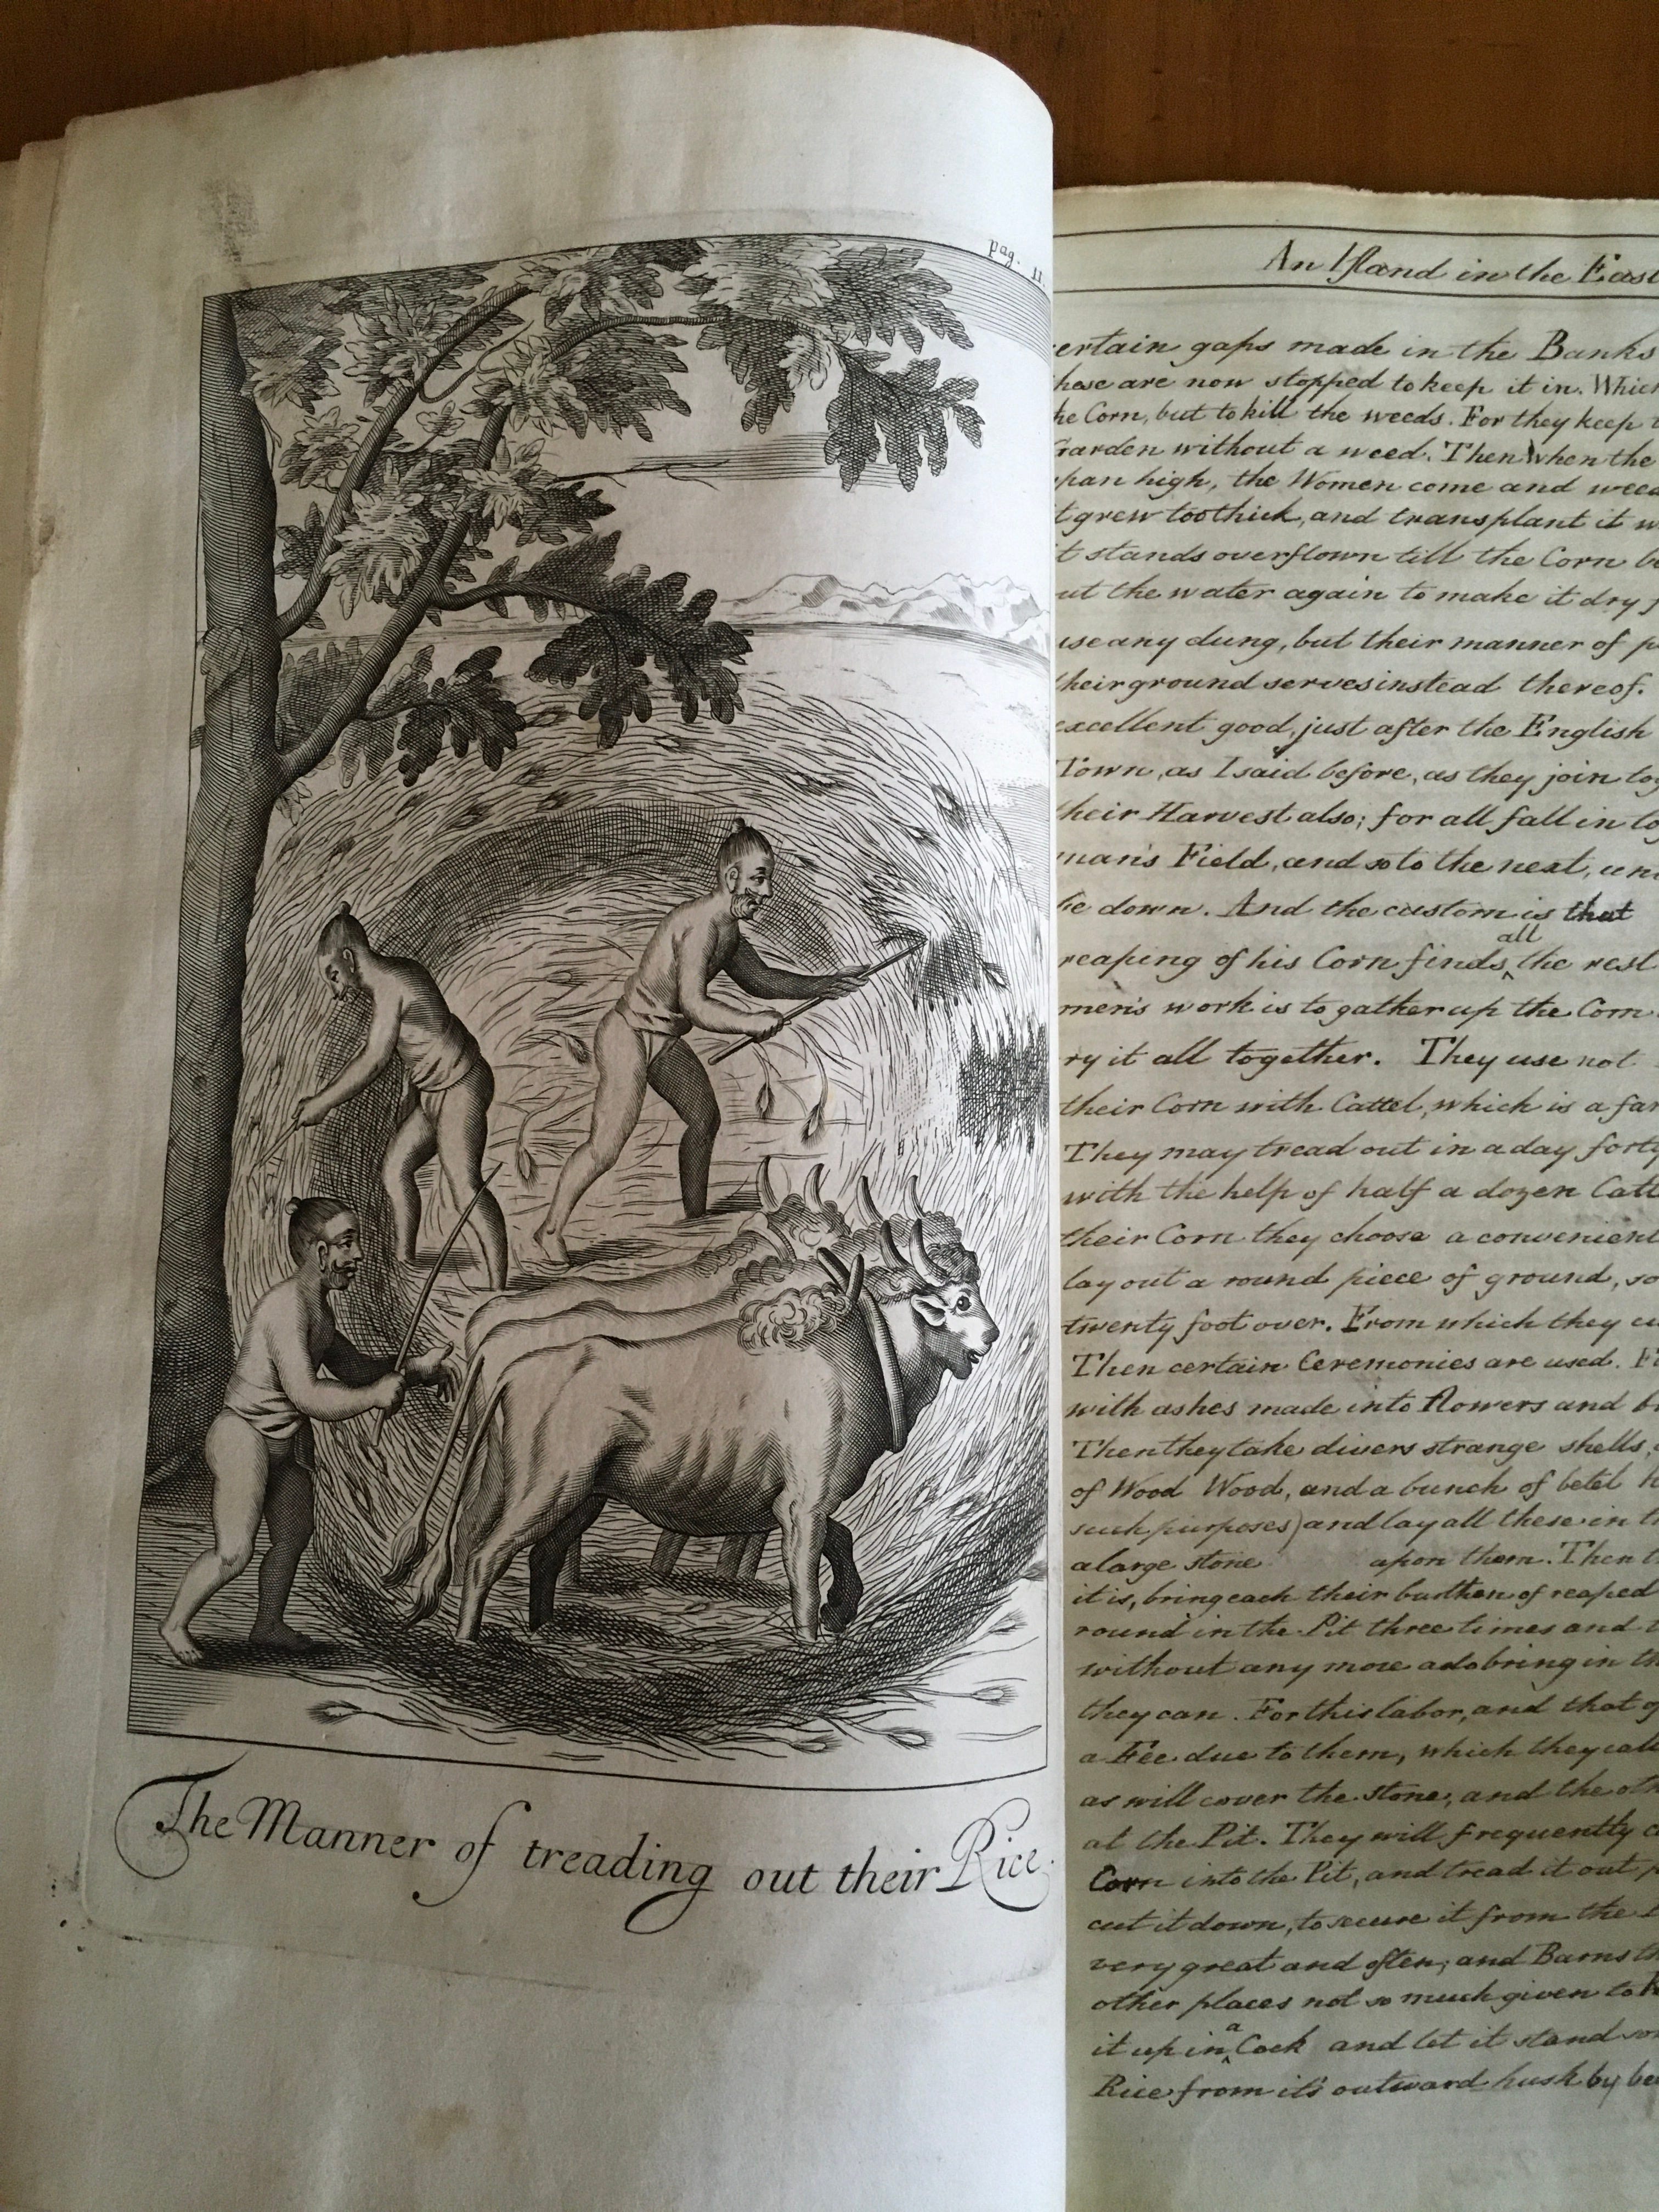 pag. 11.
The Manner of treading out their Rice.
An Island in the East
ertain gaps made in the Banks
hese are now stopped to keep it in. Which
he Corn, but to kill the weeds. For they keep t
Garden without a weed. Then when the
span high, the Women come and weed
t grew too thick, and transplant it w
t stands overflown till the Corn be
ut the water again to make it dry f
use any dung, but their manner of p
their ground serves instead thereof.
excellent good, just after the English
Town, as I said before, as they join tog
their Harvest also; for all fall in to
man's Field, and so to the next, un
be down. And the custom is that
reaping of his Corn finds all the rest
men's work is to gather up the Corn
ry it all together. They use not
their Corn with Cattel, which is a far
They may tread out in a day forty
with the help of half a dozen Catt
their Corn they choose a convenient
lay out a round piece of ground, so
twenty foot over. From which they cu
Then certain Ceremonies are used. Fi
with ashes made into flowers and b
Then they take divers strange shells,
of Wood Wood, and a bunch of betel N
such purposes) and lay all these in t
a large stone upon them. Then t
it is, bring each their burthen of reaped
round in the Pit three times and t
without any more ado bring in th
they can. For this labor, and that of
a Fee due to them, which they call
as will cover the stone, and the oth
at the Pit. They will frequently c
Corn into the Pit, and tread it out p
cut it down, to secure it from the
very great and often; and Barns th
other places not so much given to R
it up in a Cock and let it stand som
Rice from its outward husk by be